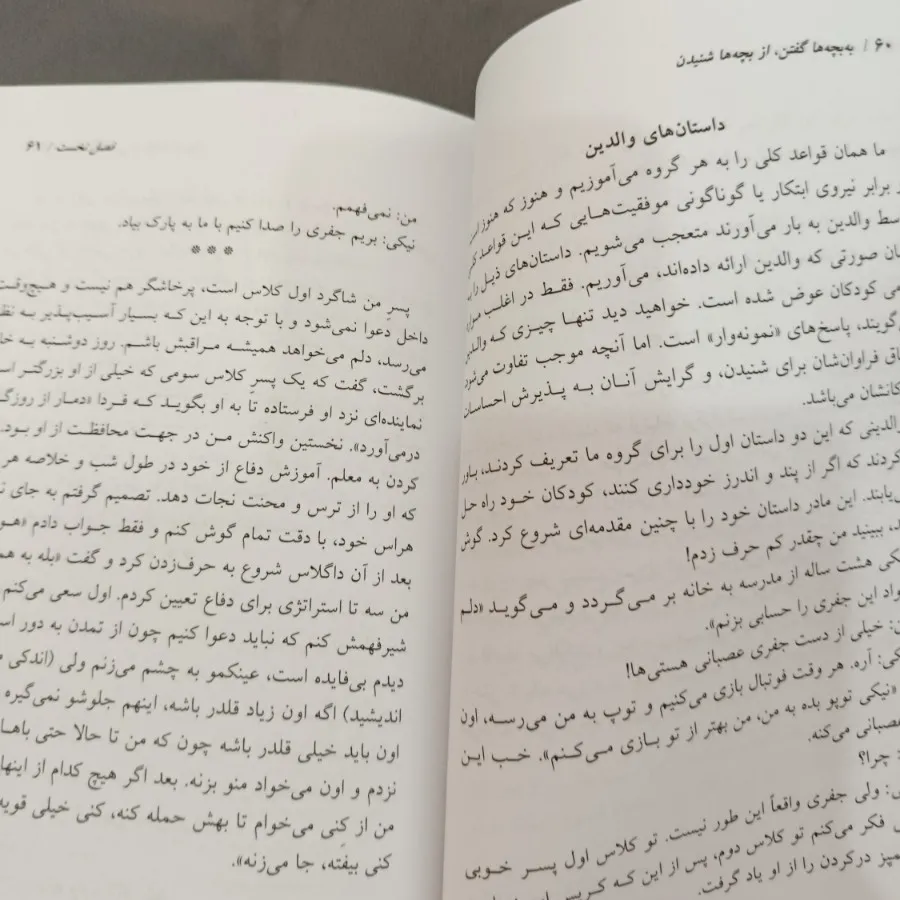 ۶۰ / به‌بچه‌ها گفتن، از بچه‌ها شنیدن
داستان‌های والدین
ما همان قواعد کلی را به هر گروه می‌آموزیم و هنوز که هنوز است
برابر نیروی ابتکار یا گوناگونی موفقیت‌هایی که این قواعد
والدین به بار می‌آورند متعجب می‌شویم. داستان‌های ذیل را
صورتی که والدین ارائه داده‌اند، می‌آوریم. فقط در اغلب
کودکان عوض شده است. خواهید دید تنها چیزی که
پاسخ‌های «نمونه‌وار» است. اما آنچه موجب تفاوت
فراوان‌شان برای شنیدن، و گرایش آنان به پذیرش احساسات
می‌باشد.
والدینی که این دو داستان اول را برای گروه ما تعریف کردند، باور
کردند که اگر از پند و اندرز خودداری کنند، کودکان خود راه حل
این مادر داستان خود را با چنین مقدمه‌ای شروع کرد. گوش
ببینید من چقدر کم حرف زدم!
هشت ساله از مدرسه به خانه بر می‌گردد و می‌گوید «دلم
این جفری را حسابی بزنم».
خیلی از دست جفری عصبانی هستی‌ها!
آره. هر وقت فوتبال بازی می‌کنیم و توپ به من می‌رسه، اون
«نیکی توپو بده به من، من بهتر از تو بازی می‌کنم». خب این
عصبانی می‌کنه.
چرا؟
ولی جفری واقعاً این طور نیست. تو کلاس اول پسر خوبی
فکر می‌کنم تو کلاس دوم، پس از این که
درکردن را از او یاد گرفت.
فصل نخست / ۶۱
من: نمی‌فهمم.
نیکی: بریم جفری را صدا کنیم با ما به پارک بیاد.
* * *
پسرِ من شاگرد اول کلاس است، پرخاشگر هم نیست و هیچ‌وقت
داخل دعوا نمی‌شود و با توجه به این که بسیار آسیب‌پذیر به نظر
می‌رسد، دلم می‌خواهد همیشه مراقبش باشم. روز دوشنبه به
برگشت، گفت که یک پسرِ کلاس سومی که خیلی از او بزرگتر
نماینده‌ای نزد او فرستاده تا به او بگوید که فردا «دمار از
درمی‌آورد». نخستین واکنش من در جهت محافظت از او بود.
کردن به معلم. آموزش دفاع از خود در طول شب و خلاصه هر
که او را از ترس و محنت نجات دهد. تصمیم گرفتم به جای
هراس خود، با دقت تمام گوش کنم و فقط جواب دادم
بعد از آن داگلاس شروع به حرف‌زدن کرد و گفت «بله به
من سه تا استراتژی برای دفاع تعیین کردم. اول سعی می‌کنم
شیرفهمش کنم که نباید دعوا کنیم چون از تمدن به دور
دیدم بی‌فایده است، عینکمو به چشم می‌زنم ولی (اندکی
اندیشید) اگه اون زیاد قلدر باشه، اینهم جلوشو نمی‌گیره
اون باید خیلی قلدر باشه چون که من تا حالا حتی
نزدم و اون می‌خواد منو بزنه. بعد اگر هیچ کدام از اینها
من از کِنی می‌خوام تا بهش حمله کنه، کنی خیلی قویه
کنی بیفته، جا می‌زنه».